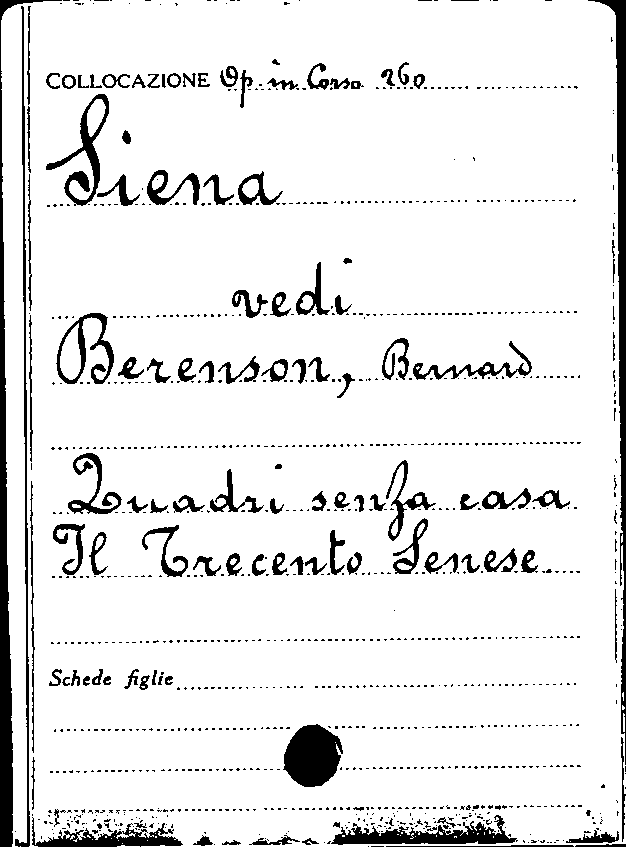 COLLOCAZIONE Op. in Corso 260
Siena
vedi
Berenson, Bernard
Quadri senza casa
Il Trecento Senese.
Schede figlie